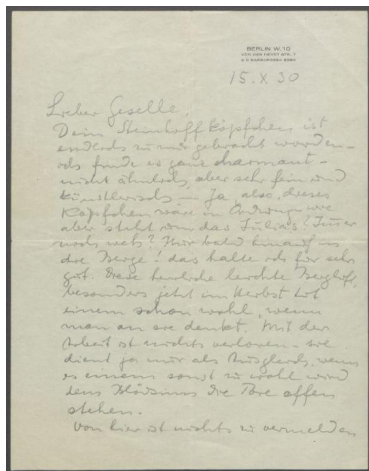 BERLIN W. 10
VON DER HEYDT STR. 7
15. X 30
Lieber Geselle,
Dein Steinhoff Köpfchen ist
endlich zu mir gebracht worden –
ich finde es ganz charmant –
nicht ähnlich, aber sehr fein und
künstlerisch. – Ja, also, dieses
Köpfchen wäre in Ordnung, wie
aber steht um das
noch nicht? Nur bald hinauf in
die Berge! das halte ich für sehr
gut. Diese herrliche leichte Bergluft,
besonders jetzt im Herbst tut
einem schon wohl, wenn
man an sie denkt. Mit der
Arbeit ist nichts verloren – sie
dient ja nur als wenn
es einem sonst zu wohl wird
dem Blödsinn die Tore offen
stehen.
Von hier ist nichts zu vermelden